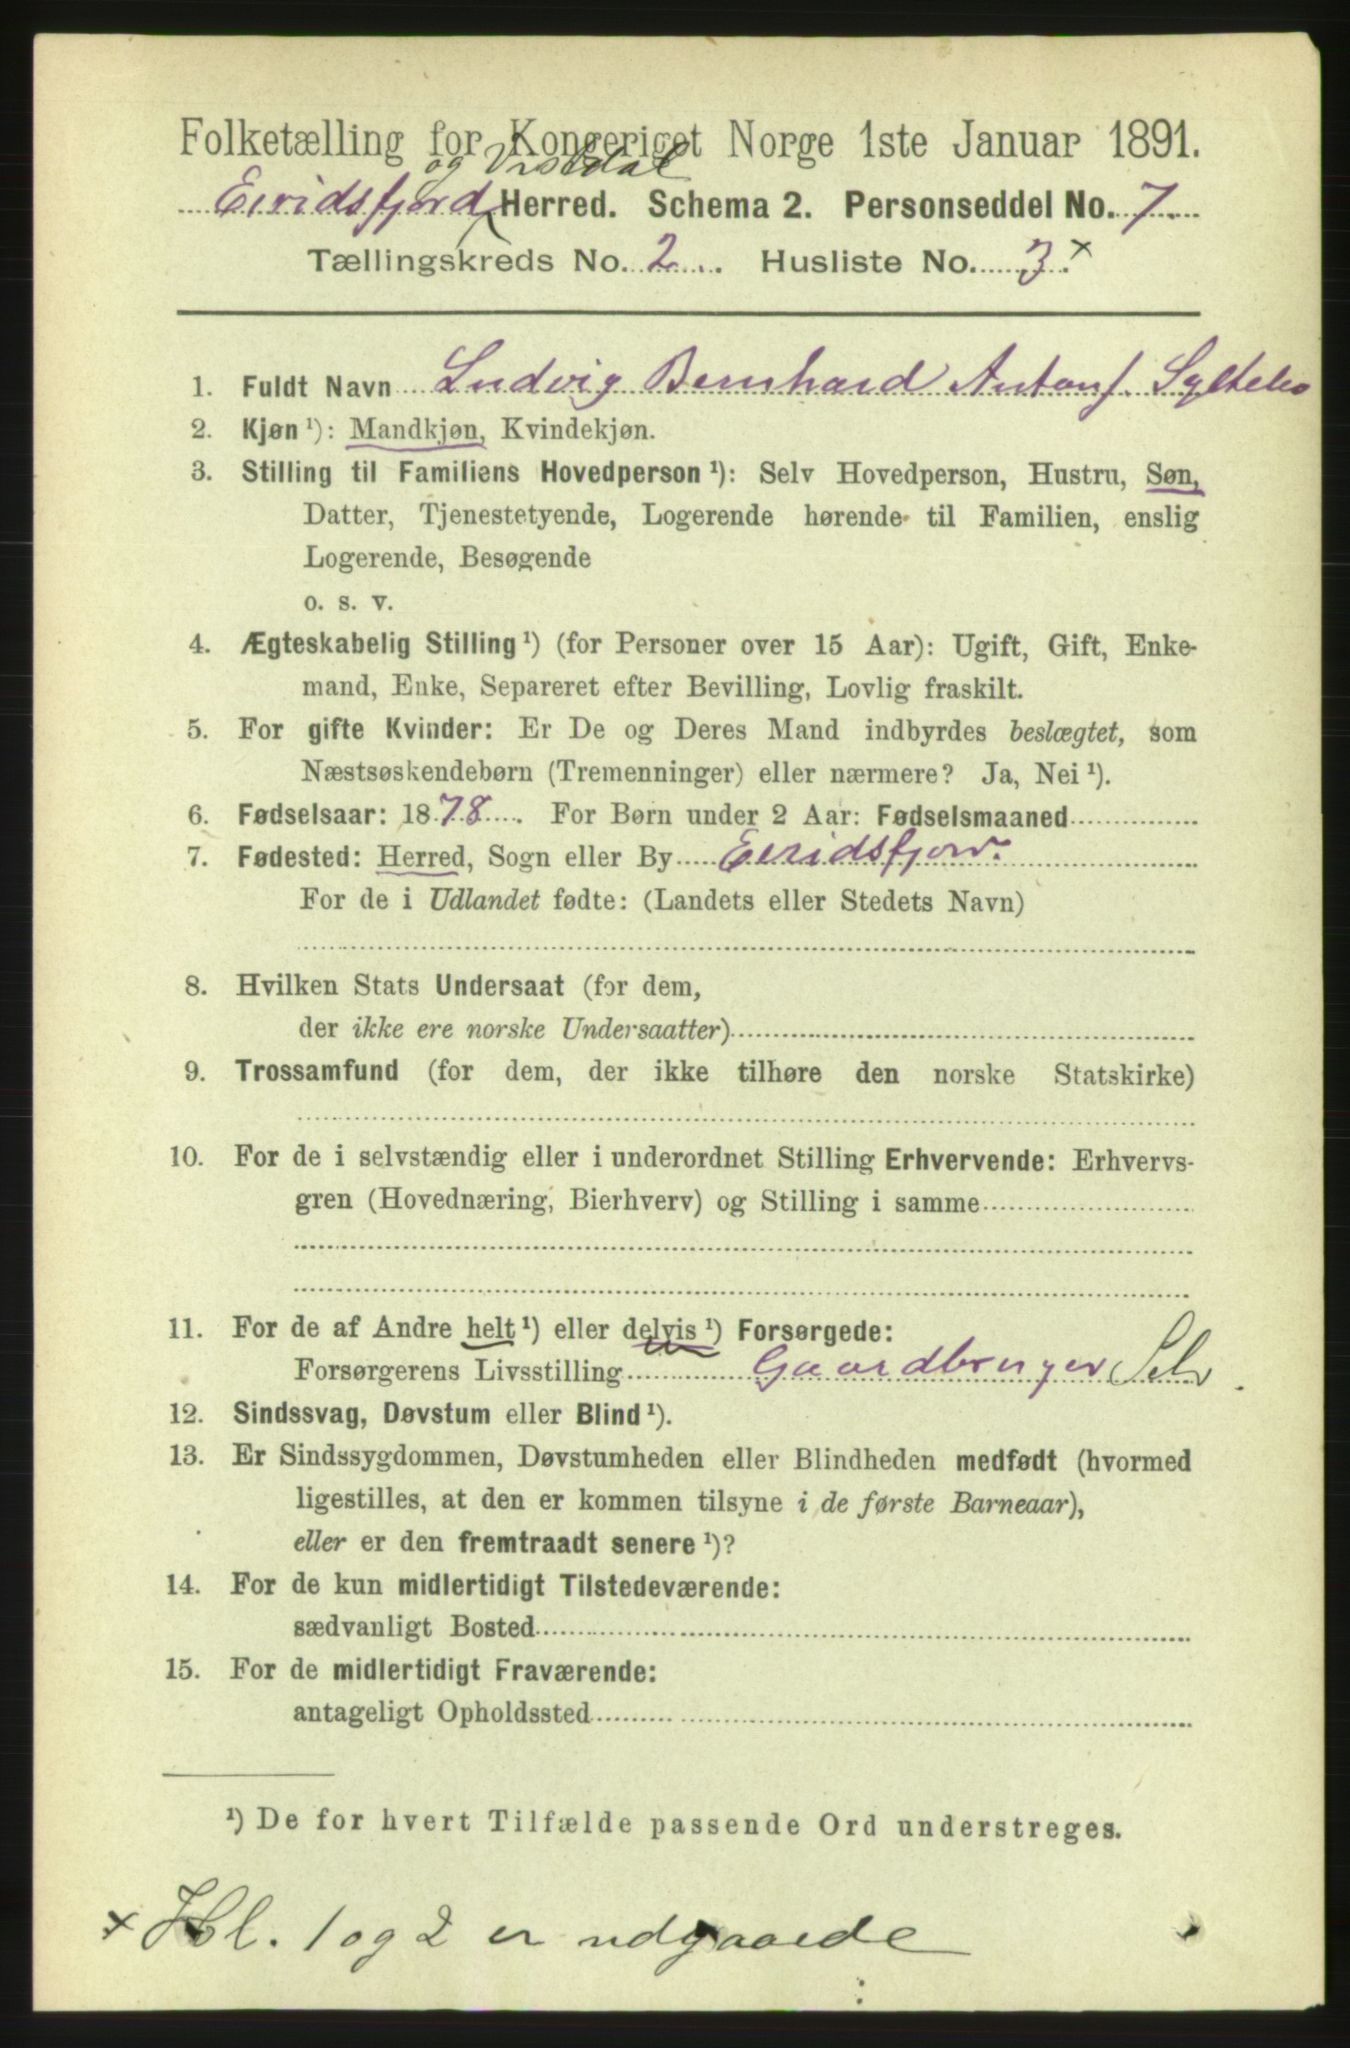 Folketælling for Kongeriget Norge 1ste Januar 1891.
og Vistdal
Eiridsfjord Herred. Schema 2. Personseddel No. 7.
Tællingskreds No. 2 Husliste No. 3 x
1. Fuldt Navn Ludvig Bernhard Antonf. Syltebø
2. Kjøn ¹): Mandkjøn, Kvindekjøn.
3. Stilling til Familiens Hovedperson ¹): Selv Hovedperson, Hustru, Søn,
Datter, Tjenestetyende, Logerende hørende til Familien, enslig
Logerende, Besøgende
o. s. v.
4. Ægteskabelig Stilling ¹) (for Personer over 15 Aar): Ugift, Gift, Enke-
mand, Enke, Separeret efter Bevilling, Lovlig fraskilt.
5. For gifte Kvinder: Er De og Deres Mand indbyrdes beslægtet, som
Næstsøskendebørn (Tremenninger) eller nærmere? Ja, Nei ¹).
6. Fødselsaar: 1878. For Børn under 2 Aar: Fødselsmaaned
7. Fødested: Herred, Sogn eller By Eiridsfjord.
For de i Udlandet fødte: (Landets eller Stedets Navn)
8. Hvilken Stats Undersaat (for dem,
der ikke ere norske Undersaatter)
9. Trossamfund (for dem, der ikke tilhøre den norske Statskirke)
10. For de i selvstændig eller i underordnet Stilling Erhvervende: Erhvervs-
gren (Hovednæring, Bierhverv) og Stilling i samme
11. For de af Andre helt ¹) eller delvis ¹) Forsørgede:
Forsørgerens Livsstilling Gaardbruger Selv.
12. Sindssvag, Døvstum eller Blind ¹).
13. Er Sindssygdommen, Døvstumheden eller Blindheden medfødt (hvormed
ligestilles, at den er kommen tilsyne i de første Barneaar),
eller er den fremtraadt senere ¹)?
14. For de kun midlertidigt Tilstedeværende:
sædvanligt Bosted
15. For de midlertidigt Fraværende:
antageligt Opholdssted
¹) De for hvert Tilfælde passende Ord understreges.
x Hl. 1 og 2 er udgaaede